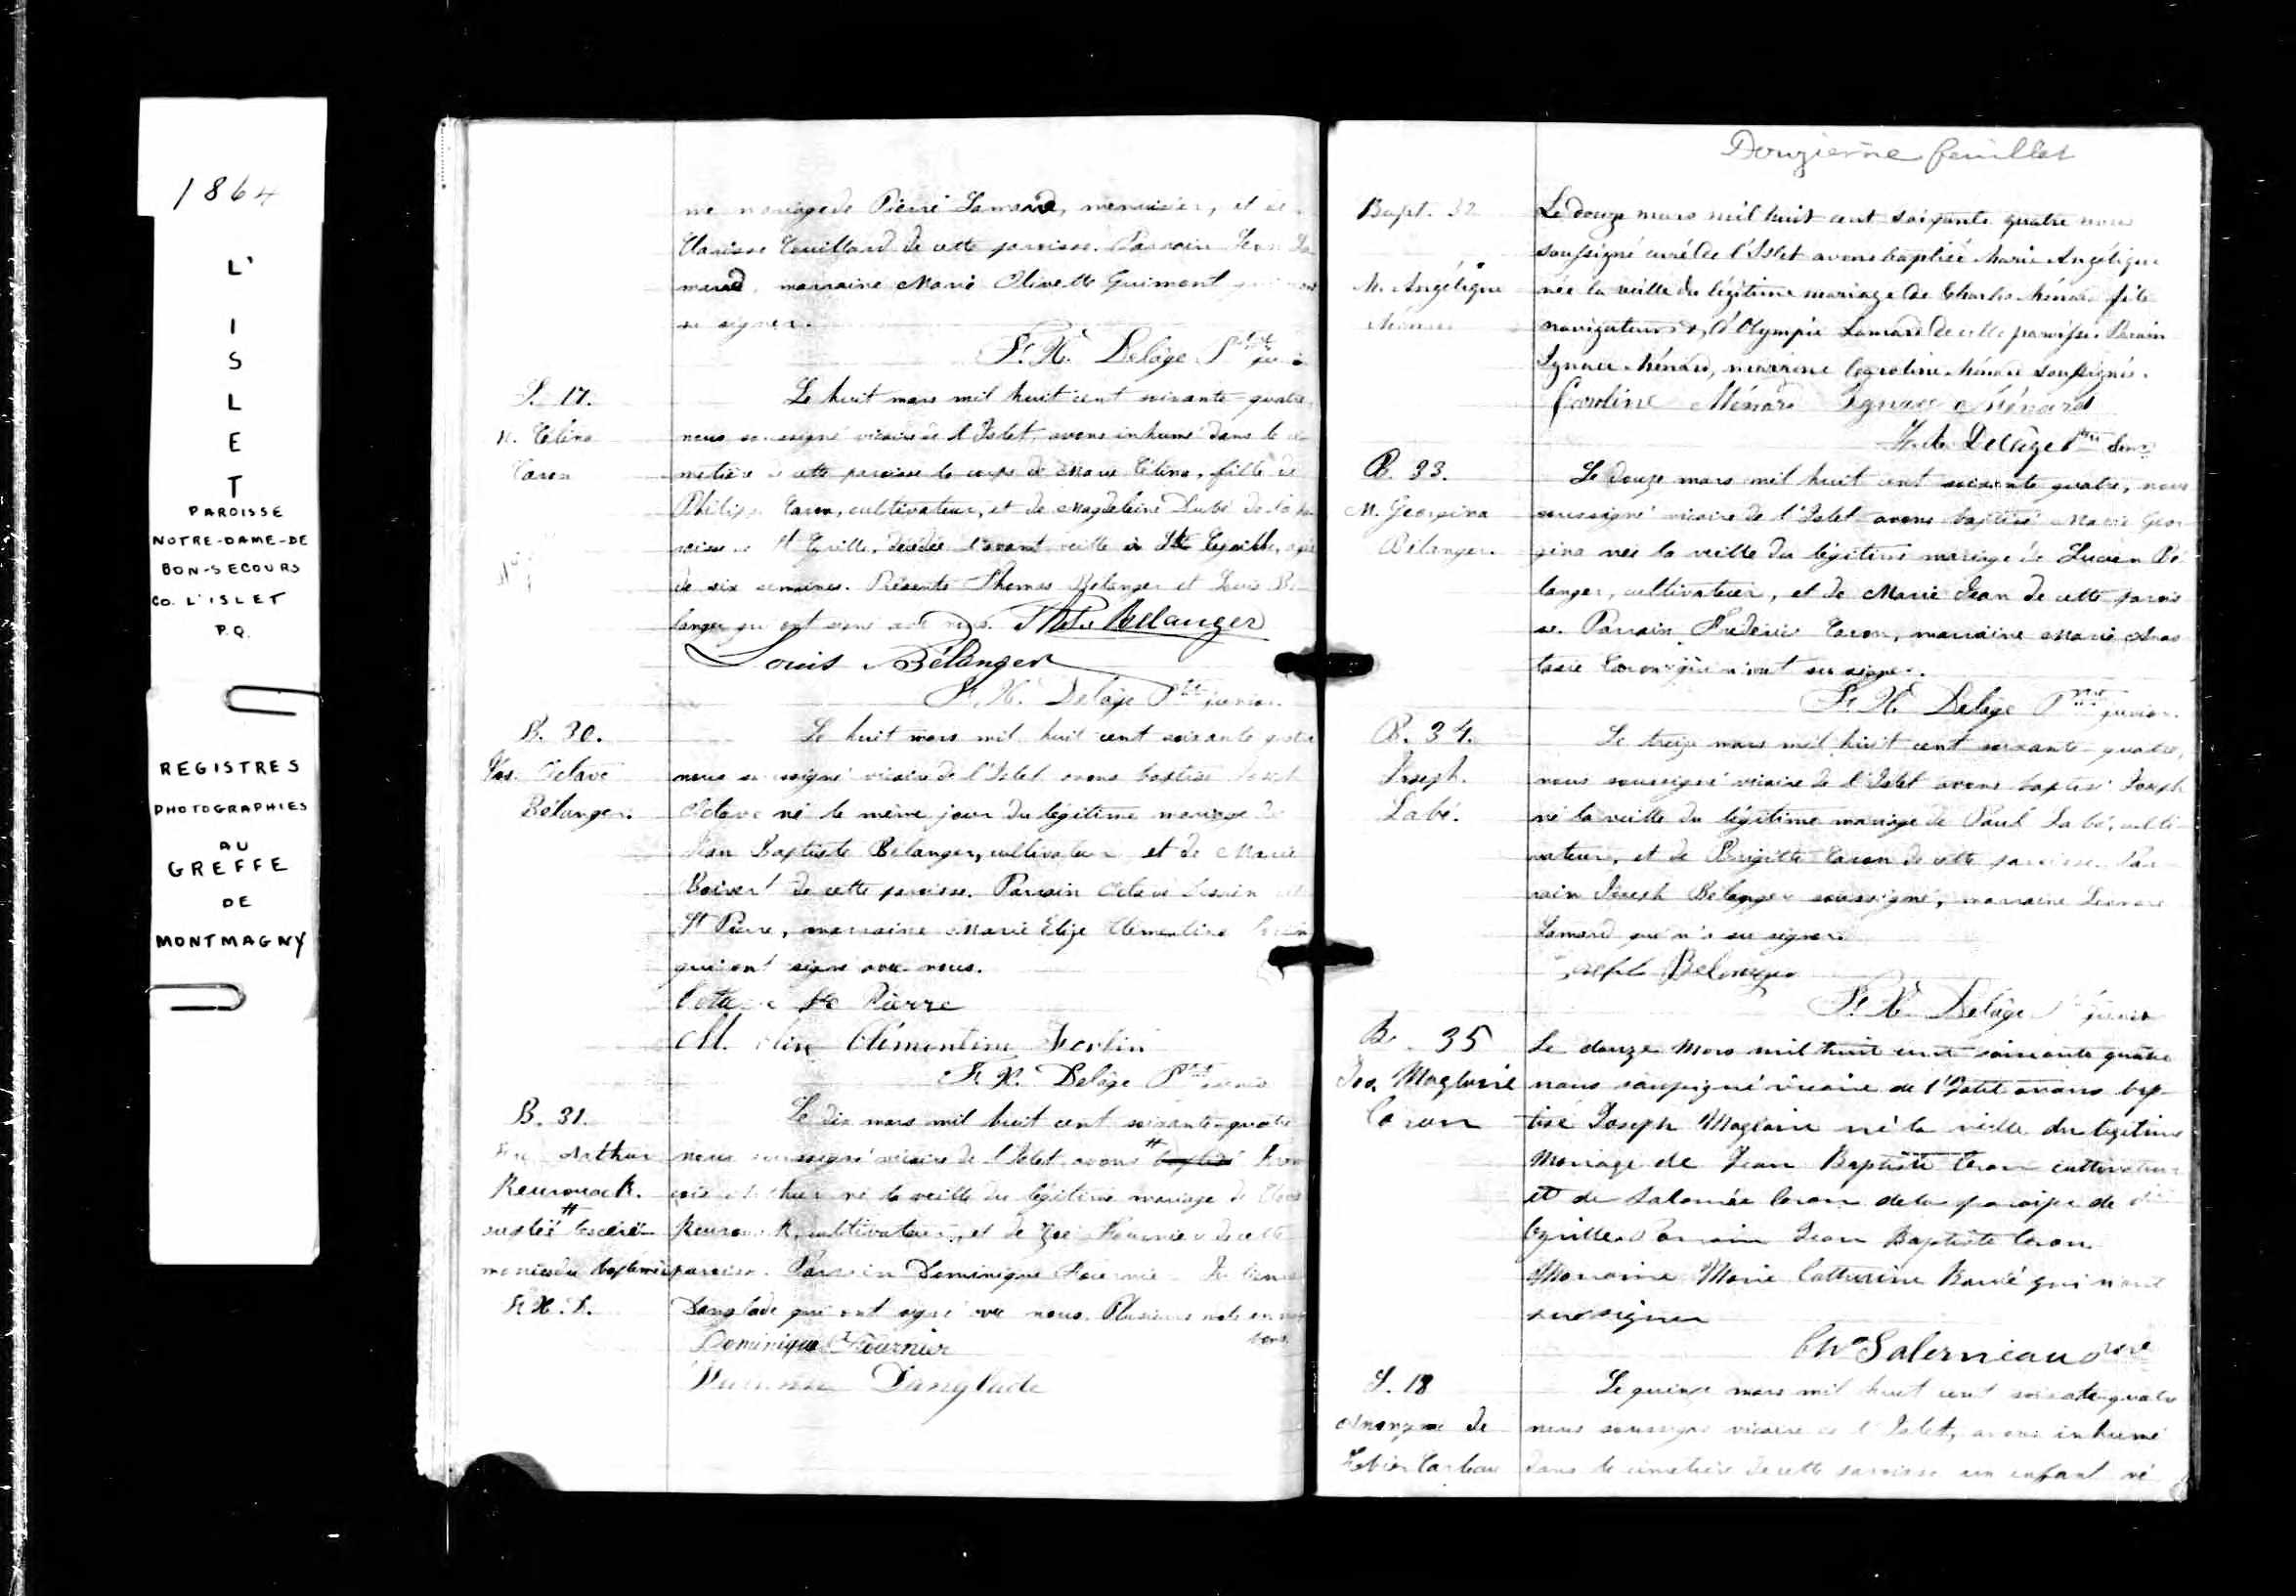 1864
L'
I
S
L
E
T
PAROISSE
NOTRE-DAME-DE
BON-SECOURS
CO. L'ISLET
P.Q.
REGISTRES
PHOTOGRAPHIES
AU
GREFFE
DE
MONTMAGNY
me mariage de Pierre Lamard, menuisier, et de
Clarisse Couillard de cette paroisse. Parrain Jean La
mard, marraine Marie Olivette Guimont
su signer.
F. X. Delâge Ptre
S. 17.
M. Célina
Caron
Le huit mars mil huit cent soixante-quatre,
nous soussigné vicaire de l'Islet, avons inhumé dans le ci
metière de cette paroisse le corps de Marie Célina, fille de
Philippe Caron, cultivateur, et de Magdeleine Dubé de la pa
roisse de St Cyrille, décédée l'avant veille à St Cyrille, agée
de six semaines. Présents Thomas Bélanger et Louis Bé
langer qui ont signé avec nous. Ths Bélanger
Louis Bélanger
F. X. Delâge Ptre junior.
B. 30.
Jos. Octave
Bélanger.
Le huit mars mil huit cent soixante quatre
nous soussigné vicaire de l'Islet avons baptisé Joseph
Octave né le même jour du légitime mariage de
Jean Baptiste Bélanger, cultivateur et de Marie
Boivert de cette paroisse. Parrain Octave
St Pierre, marraine Marie Elize Clémentine
qui ont signé avec nous.
Octave St Pierre
M. Clémentine Fortin
F. X. Delâge Ptre junior
B. 31.
Arthur
Keurouack.
suplée les céré
monies du baptême
F. X. D.
Le dix mars mil huit cent soixante-quatre
nous soussigné vicaire de l'Islet, avons baptisé Fran
çois Arthur né la veille du légitime mariage de
Keurouack, cultivateur, et de Zoé Fournier de cette
paroisse. Parrain Dominique Fournier
Danglade qui ont signé avec nous. Plusieurs mots en
bons.
Dominique Fournier
Danglade
Douzième feuillet
Bapt. 32
M. Angélique
Ménard
Le douze mars mil huit cent soixante quatre nous
soussigné curé de l'Islet avons baptisé Marie Angélique
née la veille du légitime mariage de Charles Ménard fils
navigateur & d'Olympie Lamard de cette paroisse. Parrain
Ignace Ménard, marraine Caroline Ménard soussignés.
Caroline Ménard Ignace Ménard
Delâge Ptre
B. 33.
M. Georgina
Bélanger.
Le douze mars mil huit cent soixante quatre, nous
soussigné vicaire de l'Islet avons baptisé Marie Geor
gina née la veille du légitime mariage de Lucien Bé
langer, cultivateur, et de Marie Jean de cette parois
se. Parrain Frédéric Caron, marraine Marie Anas
tasie Caron qui n'ont su signer.
F. X. Delâge Ptre junior.
B. 34.
Joseph
Labé.
Le treize mars mil huit cent soixante-quatre,
nous soussigné vicaire de l'Islet avons baptisé Joseph
né la veille du légitime mariage de Paul Labé, culti
vateur, et de Brigitte Caron de cette paroisse. Par
rain Joseph Bélanger soussigné, marraine Léonore
Lamard qui n'a su signer.
Joseph Belanger
F. X. Delâge Ptre junior
B. 35
Jos. Magloire
Caron
Le douze Mars mil huit cent soixante quatre
nous soussigné vicaire de l'Islet avons bap-
tisé Joseph Magloire né la veille du légitime
Mariage de Jean Baptiste Caron cultivateur
et de Salomée Caron de la paroisse de St
Cyrille. Parrain Jean Baptiste Caron
Marraine Marie Catherine qui n'ont
su signer
Chs Galerneau Ptre
S. 18
Anonyme de
Le quinze mars mil huit cent soixante quatre
nous soussigné vicaire de l'Islet, avons inhumé
dans le cimetière de cette paroisse un enfant né